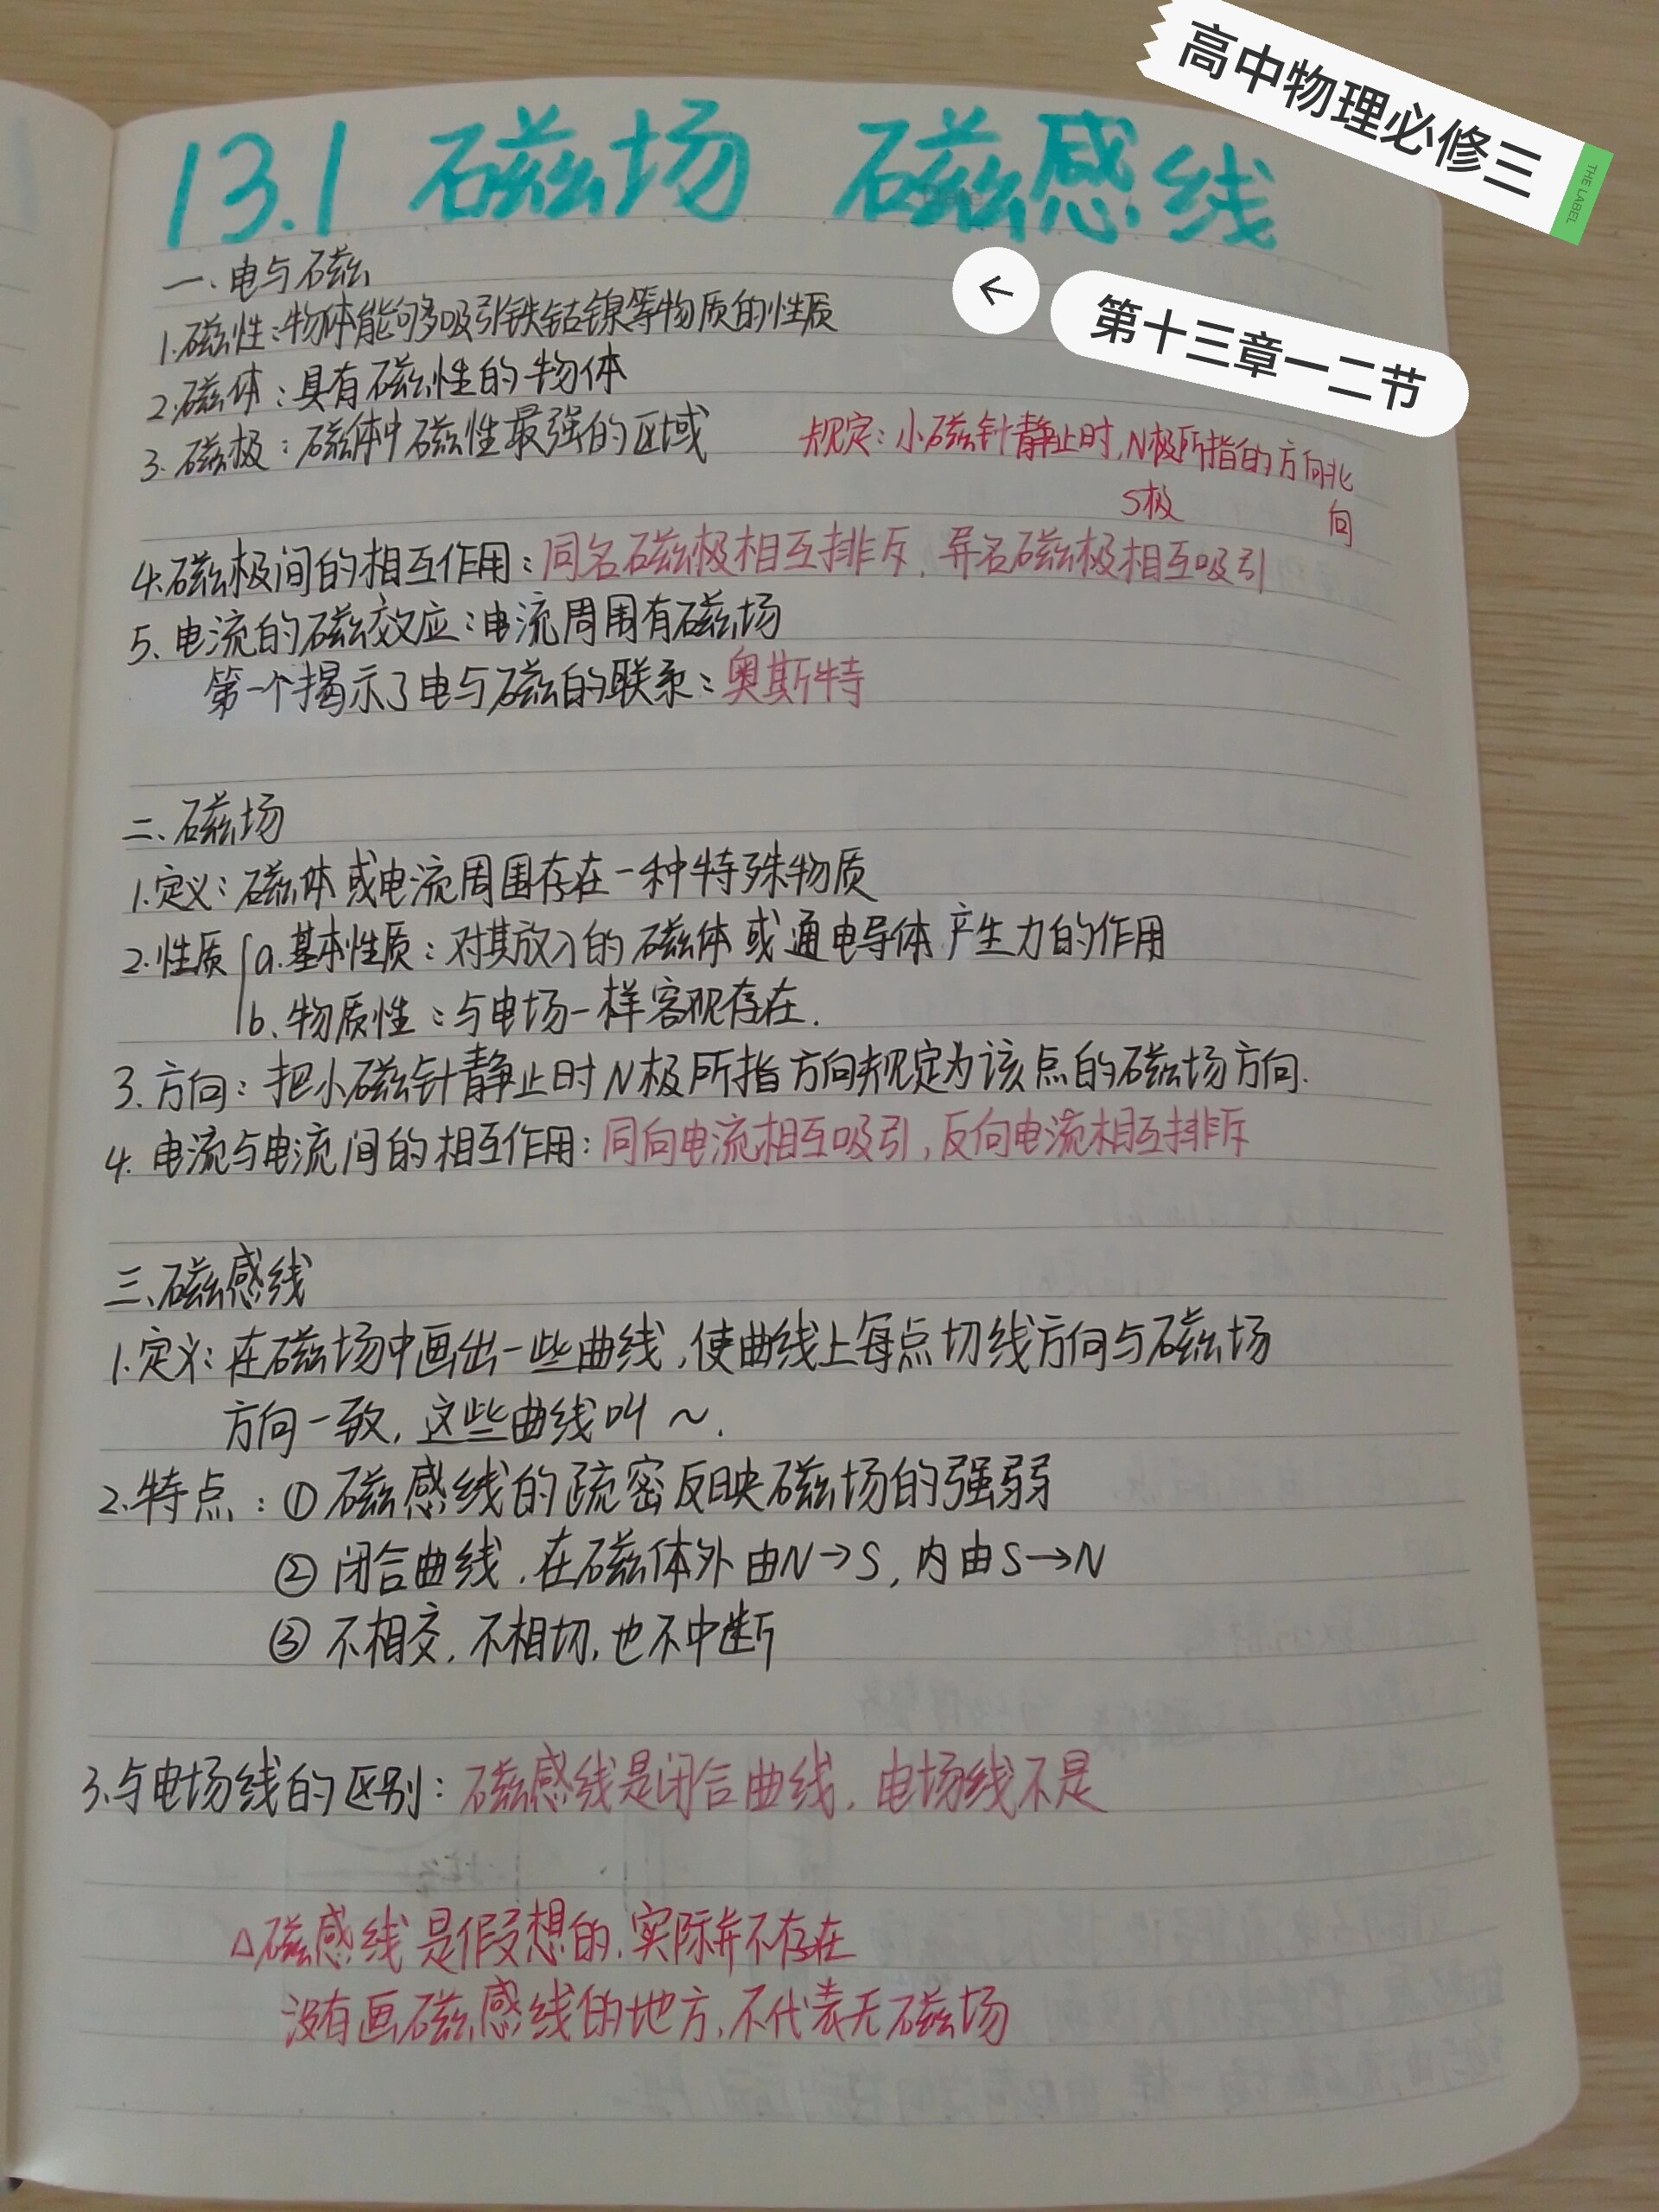 高中物理必修三
THE LABEL
13.1 磁场 磁感线
←
第十三章一二节
一、电与磁
1.磁性:物体能够吸引铁钴镍等物质的性质
2.磁体:具有磁性的物体
3.磁极:磁体中磁性最强的区域
规定:小磁针静止时,N极所指的方向北
S极 向
4.磁极间的相互作用:同名磁极相互排斥,异名磁极相互吸引
5.电流的磁效应:电流周围有磁场
第一个揭示了电与磁的联系:奥斯特
二、磁场
1.定义:磁体或电流周围存在一种特殊物质
2.性质 a.基本性质:对其放入的磁体或通电导体产生力的作用
b.物质性:与电场一样客观存在.
3.方向:把小磁针静止时N极所指方向规定为该点的磁场方向.
4.电流与电流间的相互作用:同向电流相互吸引,反向电流相互排斥
三、磁感线
1.定义:在磁场中画出一些曲线,使曲线上每点切线方向与磁场
方向一致,这些曲线叫~.
2.特点:①磁感线的疏密反映磁场的强弱
②闭合曲线,在磁体外由N→S,内由S→N
③不相交,不相切,也不中断
3.与电场线的区别:磁感线是闭合曲线,电场线不是
△磁感线是假想的,实际并不存在
没有画磁感线的地方,不代表无磁场